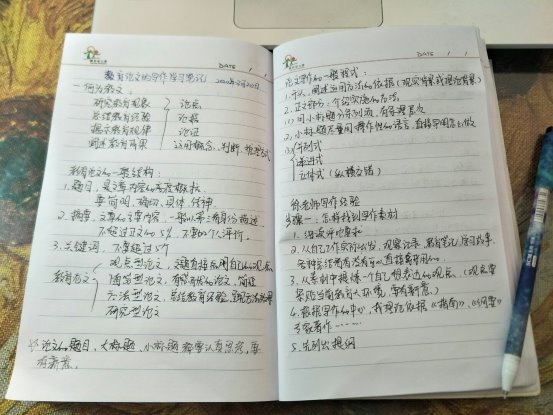 DATE / /
教育论文的写作学习笔记 2020年2月20日
一. 何为教文:
研究教育现象 论点
总结教育经验 论据
揭示教育规律 论证
阐述教育成果 运用概念、判断、推理方式
教育论文的一般结构:
1. 题目, 是文章内容的高度概括
要简明、确切、具体、传神
2. 摘要, 文章的主要内容, 一般以第三者身份概述
不超过正文的5%, 不要的个人评价。
3. 关键词, 不要超过5个
教育论文
观点型论文, 文题直接反映自己的观点
方法型论文, 总结教育经验
研究型论文
☆ 论文的题目、大标题、小标题都要认真思考, 要
有新意。
DATE / /
论文写作的一般程式:
1. 引入, 阐述运用方法的依据 (现实背景或理论背景)
2. 正文部分: 介绍实施的方法
(1) 用小标题分条列项, 有条理层次
2. 小标题尽量用操作性的语言, 直接呈现怎么做
并列式
递进式
立体式 (纵横交错)
徐老师写作经验
步骤一: 怎样找到写作素材
1. 细读评比要求
2. 从自己工作实际出发, 观察记录、教育笔记、学习故事、
各种总结看有没有可以直接拿来用的
3. 从素材中提炼一个自己想表达的观点。(观点要
紧跟当前教育大环境, 要有新意)
4. 根据写作的中心, 找理论依据《指南》、《纲要》
专家著作……
5. 先列出提纲